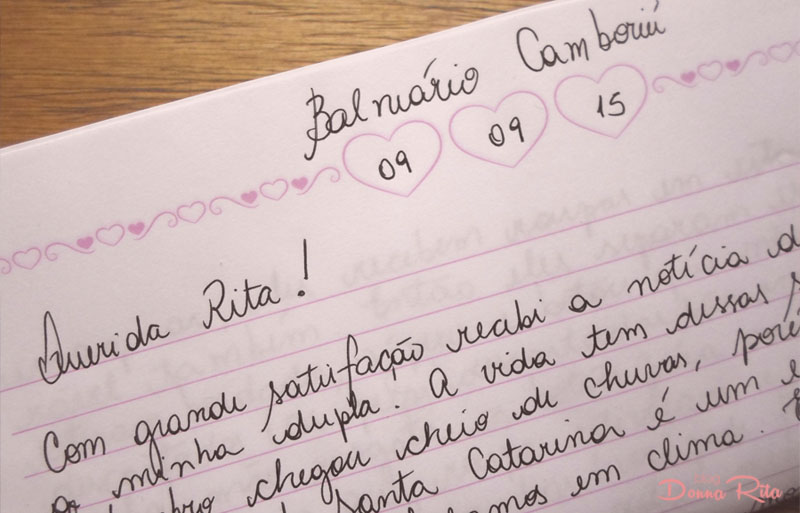 Balneário Camboriú
09 09 15
Querida Rita!
Com grande satisfação recebi a notícia d
a minha dupla. A vida tem dessas s
chegou cheio de chuvas, poré
Santa Catarina é um e
em clima.
Donna Rita